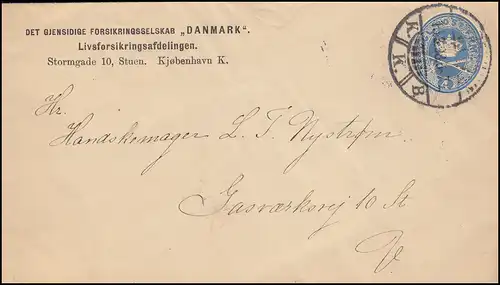 DET GJENSIDIGE FORSIKRINGSSELSKAB „DANMARK“.
Livsforsikringsafdelingen.
Stormgade 10, Stuen. Kjøbenhavn K.
K K B
Hr.
Handskemager L. T. Nystrøm
Gasværksvej 10 St
V.